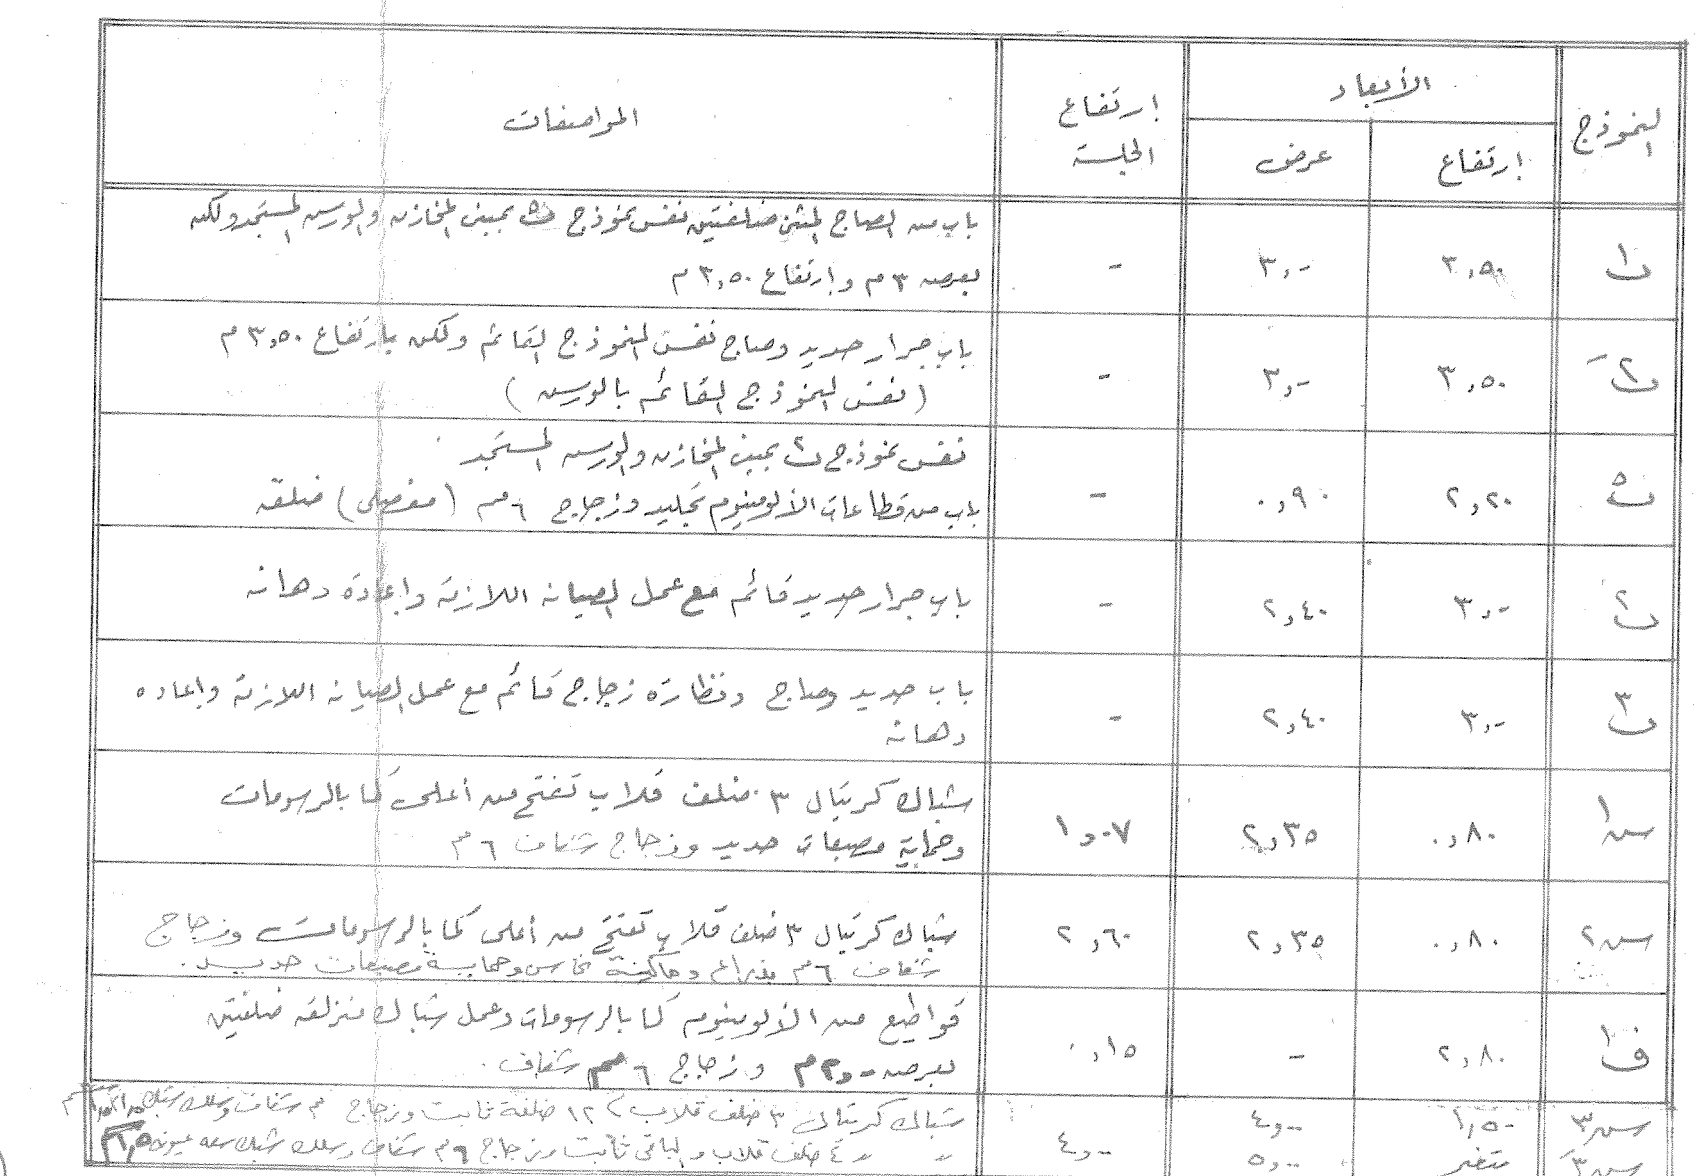 النموذج
الأبعاد
إرتفاع
عرض
إرتفاع
الجلسة
المواصفات
ب١
٣,٥٠
٣,-
-
باب من الصاج المثنى ضلفتين نفس نموذج بمبنى المخازن والورس المستجد ولكن
بعرض ٣ م وإرتفاع ٣,٥٠ م
ب٢َ
٣,٥٠
٣,-
-
باب جرار حديد وصاج نفس النموذج القائم ولكن بإرتفاع ٣,٥٠ م
( نفس النموذج القائم بالورس )
٢,٢٠
٠,٩٠
-
نفس نموذج بمبنى المخازن والورس المستجد
باب من قطاعات الألومنيوم تجليد وزجاج ٦ مم ( مفصلى ) ضلفه
ب٢
٣,-
٢,٤٠
-
باب جرار حديد قائم مع عمل الصيانه اللازمه وإعادة دهانه
ب٣
٣,-
٢,٤٠
-
باب حديد وصاج ونظارة زجاج قائم مع عمل الصيانه اللازمة وإعاده
دهانه
س١
٠,٨٠
٢,٣٥
١,٠٧
شباك كريتال ٣ ضلف قلاب تفتح من أعلى كما بالرسومات
وحماية مصبعات حديد وزجاج شفاف ٦ م
س٢
٠,٨٠
٢,٣٥
٢,٦٠
شباك كريتال ٣ ضلف قلاب تفتح من أعلى كما بالرسومات وزجاج
شفاف ٦ م بذراع وماكينة نحاس وحماية مصبعات حديد .
ف١
٢,٨٠
-
٠,١٥
قواطيع من الألومنيوم كما بالرسومات وعمل شباك منزلقه ضلفتين
بعرض ٢,٠٠ م وزجاج ٦ مم شفاف .
س٣
١,٥٠
٤,٠٠
شباك كريتال ٣ ضلف قلاب ١٢ ضلفة ثابت وزجاج شفاف وسلك شبك
س٣َ
متغير
٥,٠٠
٤,٠٠
" " ٤ ضلف قلاب والباقى ثابت وزجاج ٦ م شفاف وسلك شبك سعه عيونه